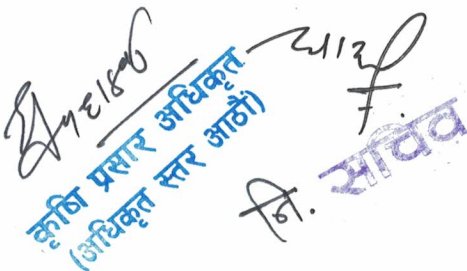 कृषि प्रसार अधिकृत
(अधिकृत स्तर आठौं)
नि. सचिव